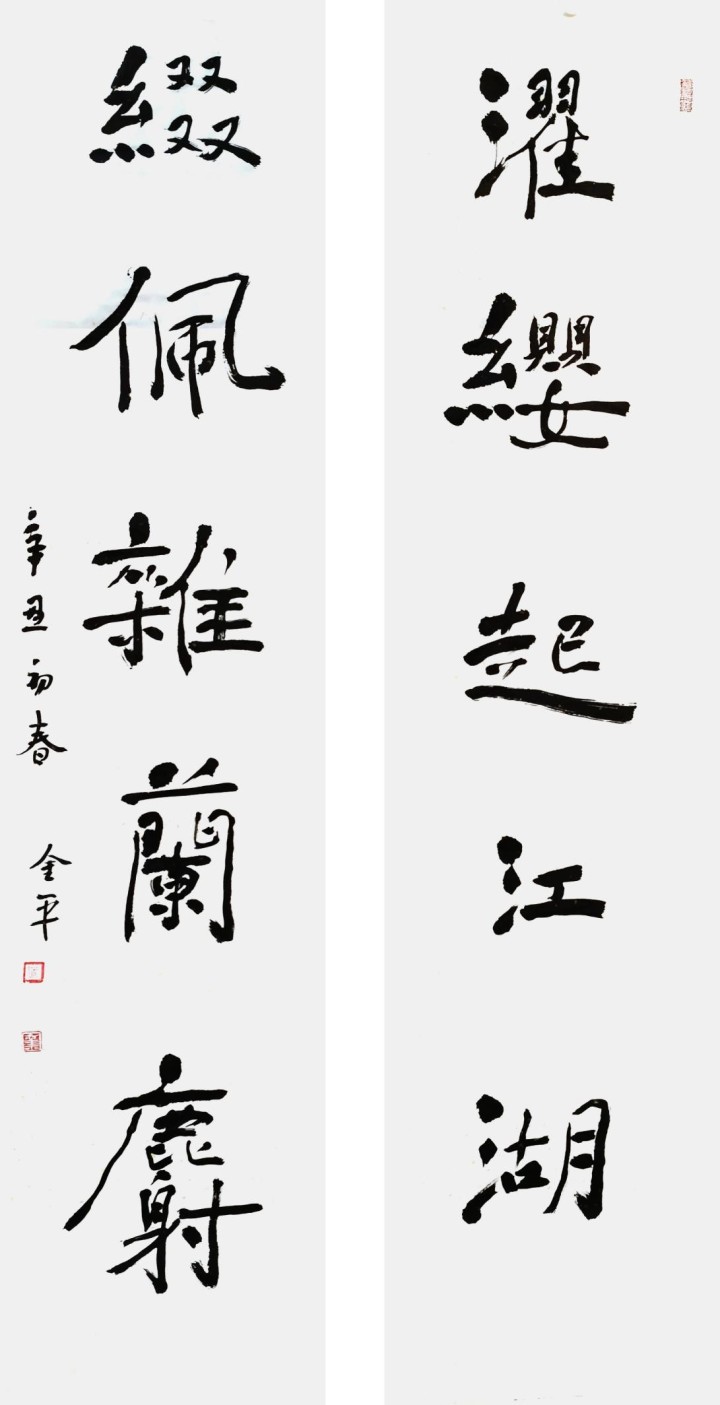 濯纓起江湖
綴佩雜蘭麝
辛丑初春
金平